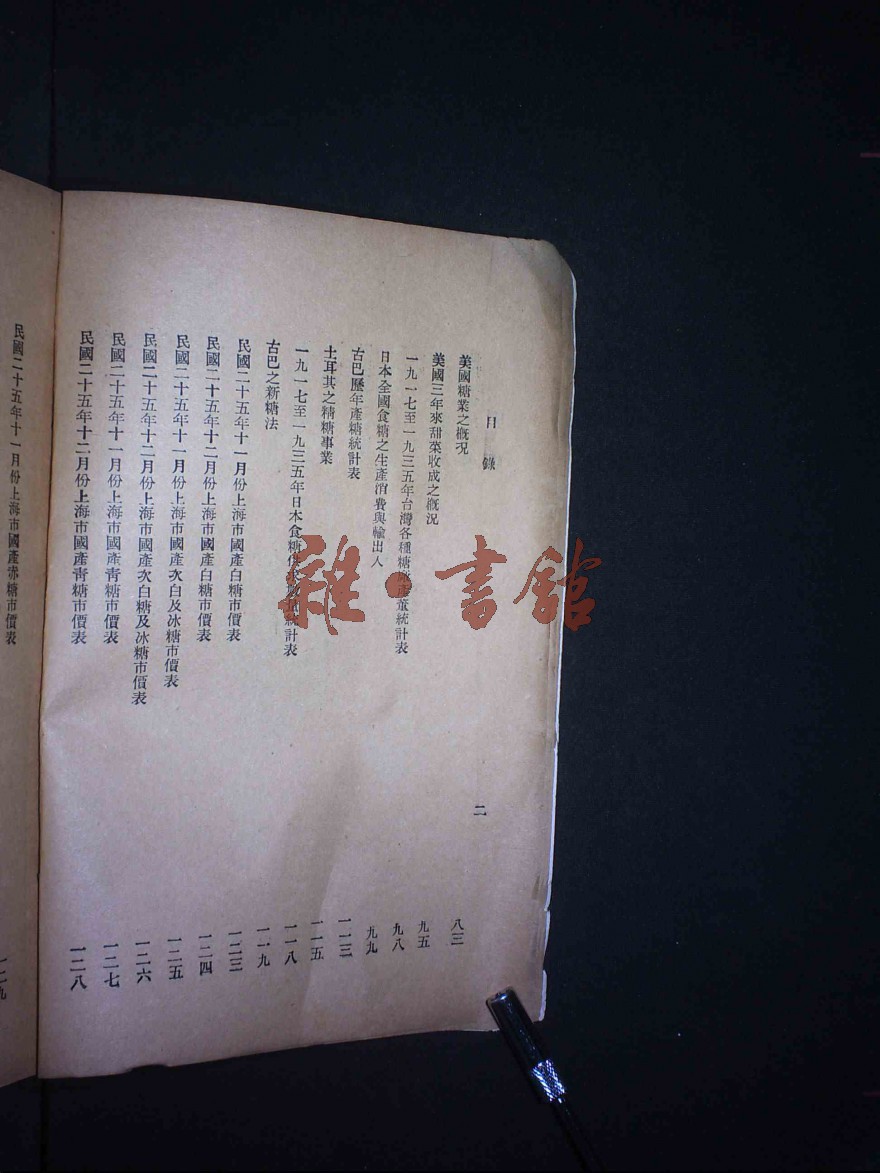 目錄 二
美國糖業之概況 八三
美國三年來甜菜收成之概況 九五
一九一七至一九三五年台灣各種糖產量統計表 九八
日本全國食糖之生產消費與輸出入 九九
古巴歷年產糖統計表 一一三
土耳其之精糖事業 一一五
一九一七至一九三五年日本食糖供求數量統計表 一一八
古巴之新糖法 一一九
民國二十五年十一月份上海市國產白糖市價表 一二三
民國二十五年十二月份上海市國產白糖市價表 一二四
民國二十五年十一月份上海市國產次白及冰糖市價表 一二五
民國二十五年十二月份上海市國產次白糖及冰糖市價表 一二六
民國二十五年十一月份上海市國產靑糖市價表 一二七
民國二十五年十二月份上海市國產靑糖市價表 一二八
民國二十五年十一月份上海市國產赤糖市價表 一二九
雜·書館